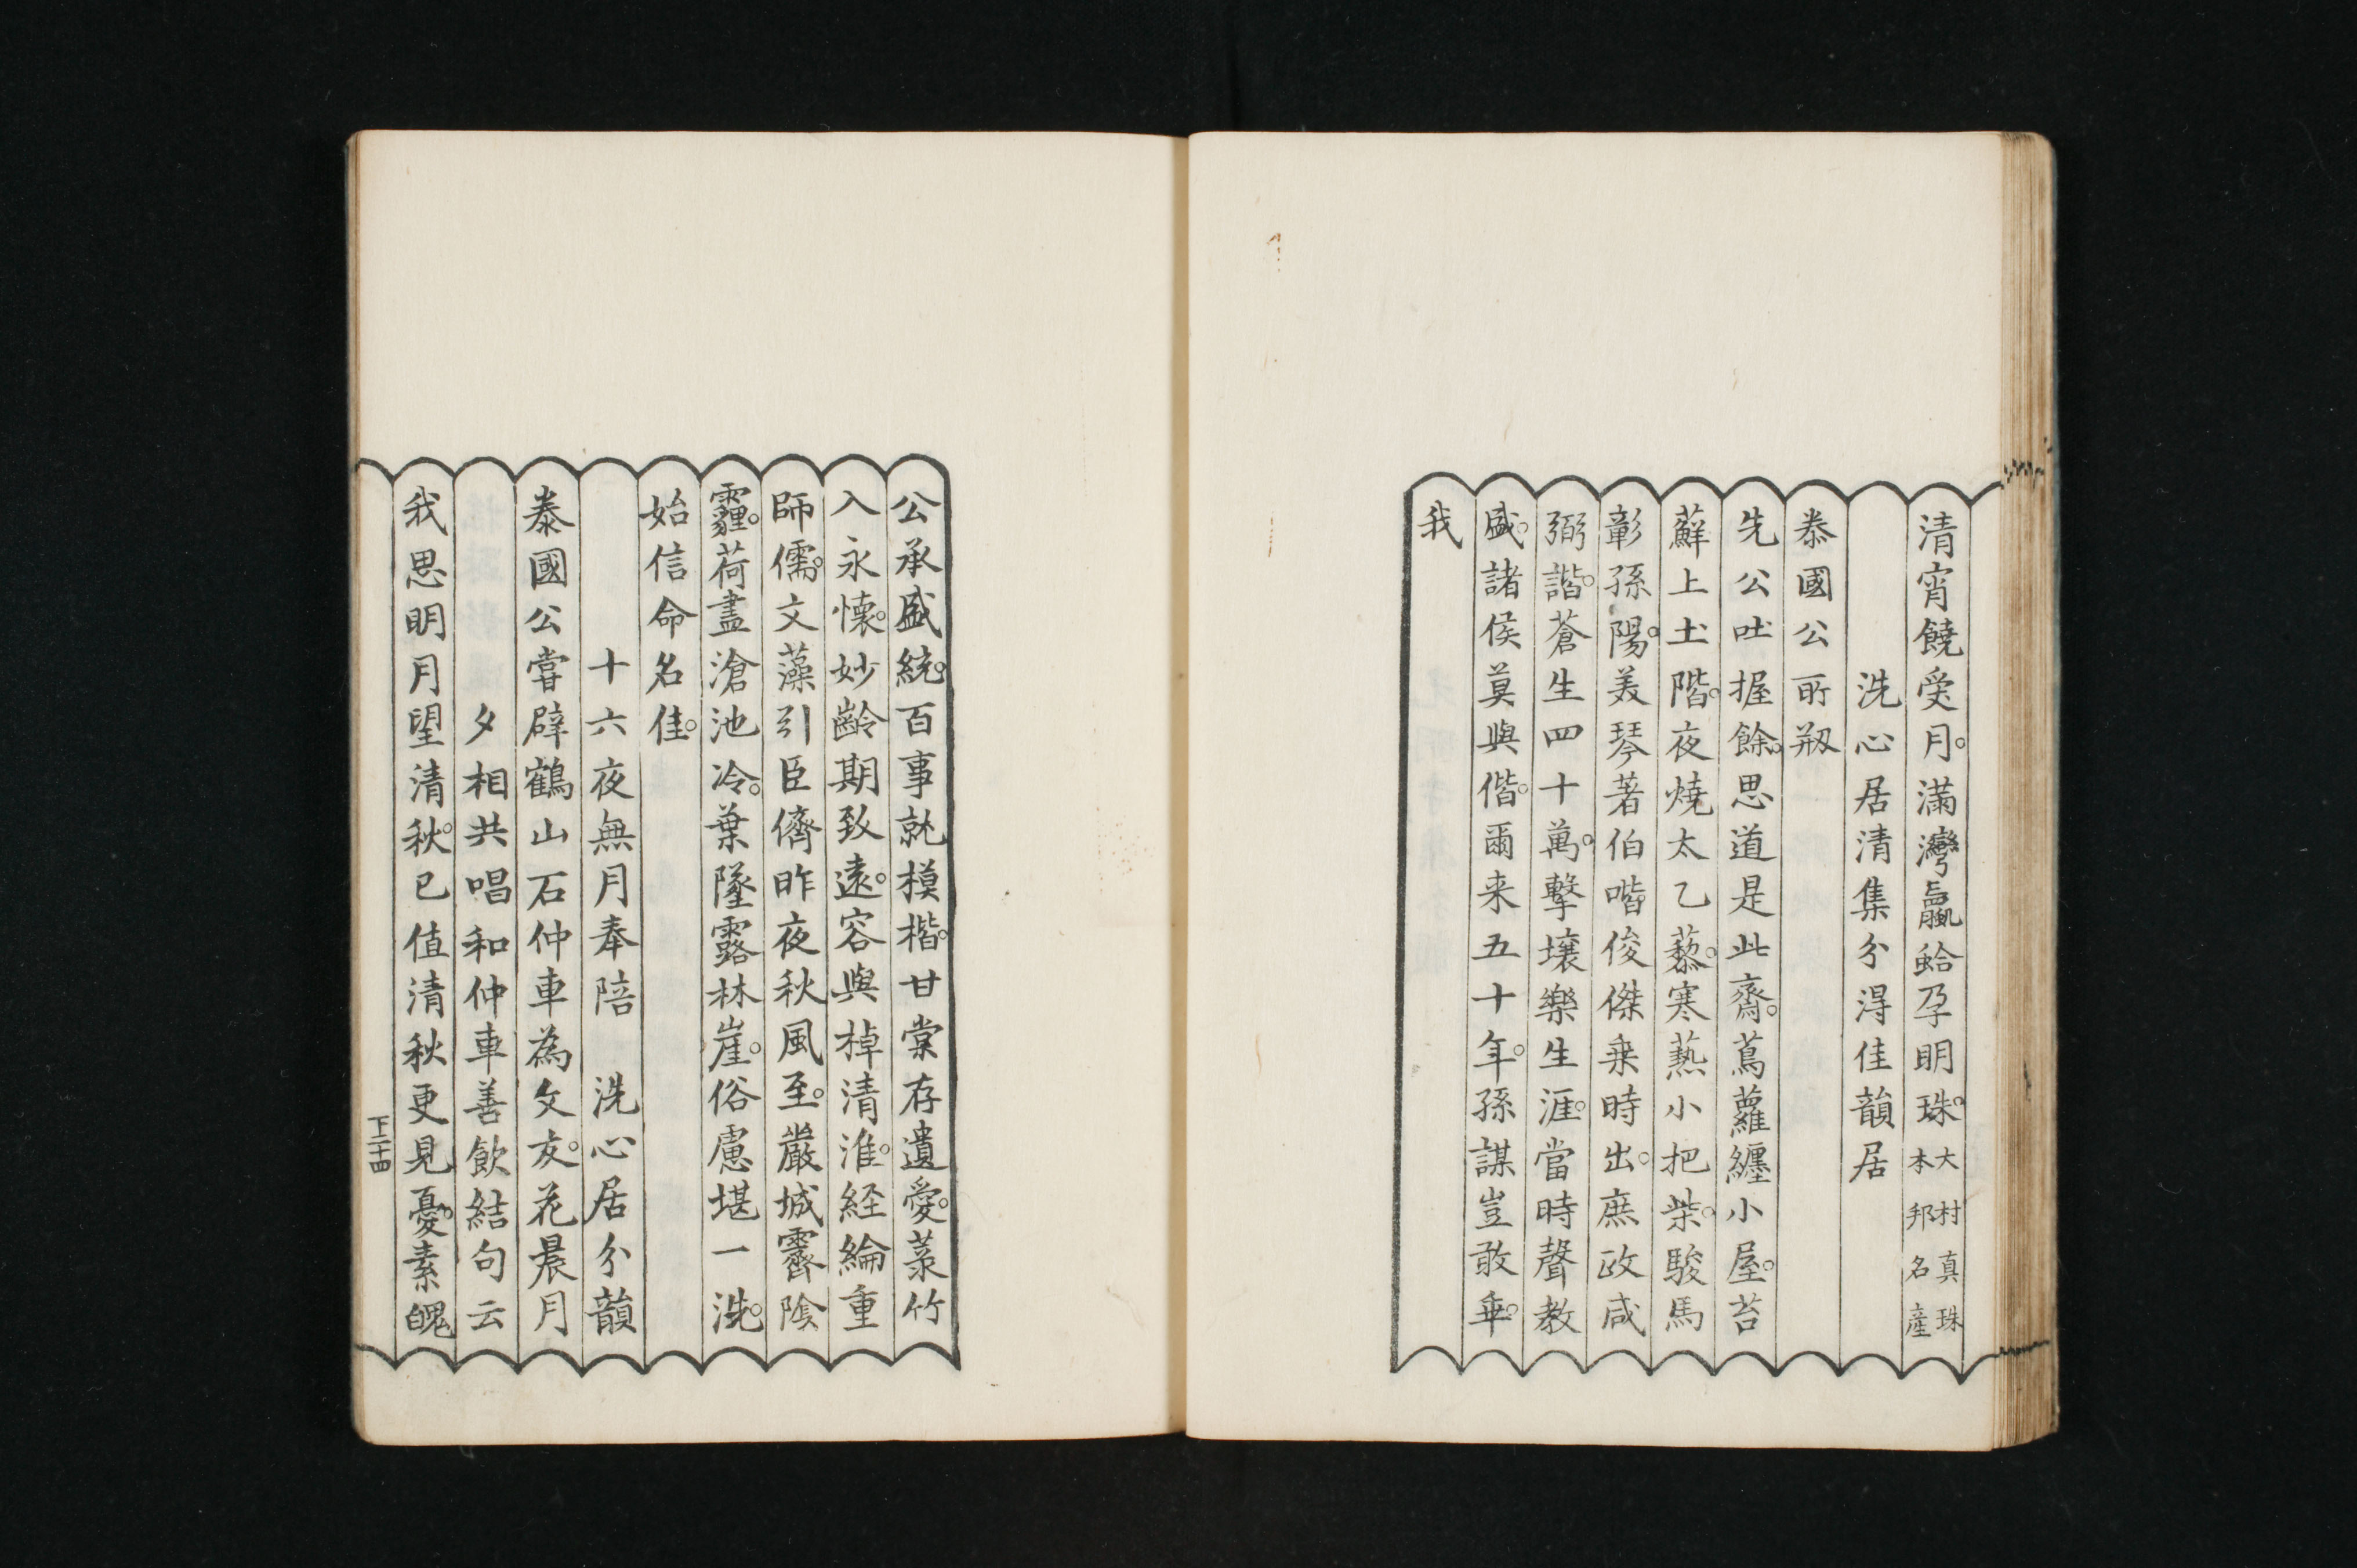 清宵饒受月。滿灣蠃蛤孕明珠。大村真珠
本邦名產
洗心居清集分淂佳韻居
泰國公所剏
先公吐握餘。思道是此齋。蔦蘿纏小屋。苔
蘚上土階。夜燒太乙藜。寒爇小把柴。駿馬
彰孫陽。美琴著伯喈。俊傑乗時出。庶政咸
弼諧。蒼生四十萬。擊壤樂生涯。當時聲教
盛。諸侯莫與偕。爾来五十年。孫謀豈敢乖。
我
公承盛統。百事就模楷。甘棠存遺愛。菉竹
入永懐。妙齡期致遠。容與棹清淮。経綸重
師儒。文藻引臣儕。昨夜秋風至。嚴城霽陰
霾。荷盡滄池冷。葉墜露林崖。俗慮堪一洗。
始信命名佳。
十六夜無月奉陪　洗心居分韻
泰國公甞辟鶴山石仲車為文友。花晨月
夕相共唱和仲車善飲結句云
我思明月望清秋。已值清秋更見憂。素魄
下二十四